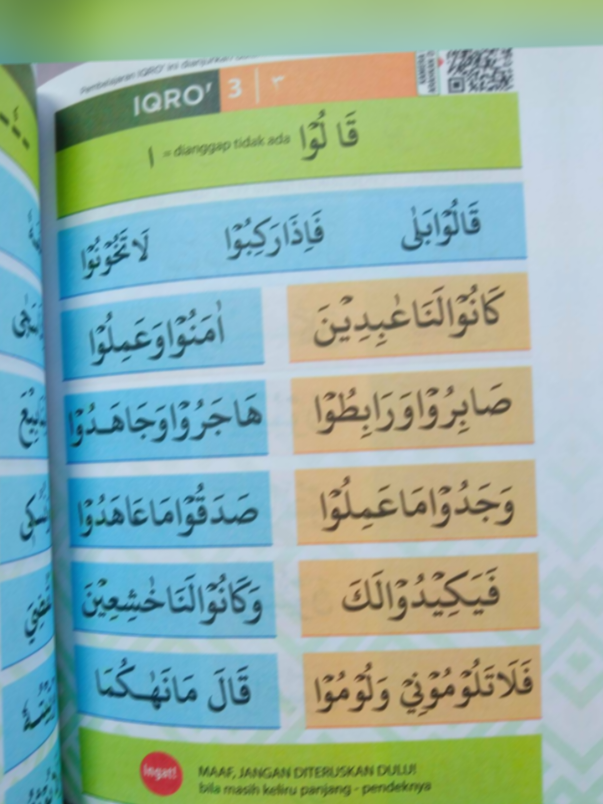 Pembelajaran IQRO' ini dianjurkan
IQRO' 3 | ٣
قَا لُوْا ا = dianggap tidak ada
قَالُوْابَلٰى فَاِذَارَكِبُوْا لَا تَخُوْنُوْا
كَانُوْالَنَاعٰبِدِيْنَ اٰمَنُوْاوَعَمِلُوْا
صَابِرُوْاوَرَابِطُوْا هَاجَرُوْاوَجَاهَدُوْا
وَجَدُوْامَاعَمِلُوْا صَدَقُوْامَاعَاهَدُوْا
فَيَكِيْدُوْالَكَ وَكَانُوْالَنَاخٰشِعِيْنَ
فَلَاتَلُوْمُوْنِيْ وَلُوْمُوْا قَالَ مَانَهٰكُمَا
Ingat! MAAF, JANGAN DITERUSKAN DULU!
bila masih keliru panjang - pendeknya